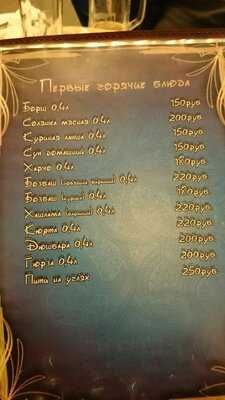 Первые горячие блюда
Борщ 0,4л 150руб
Солянка мясная 0,4л 200руб
Куриная лапша 0,4л 150руб
Суп домашний 0,4л 150руб
Харчо 0,4л 180руб
Бозбаш 0,4л 220руб
Бозбаш (курица) 0,4л 180руб
Хашлама (баранина) 0,4л 220руб
Кюфта 0,4л 220руб
Дюшбара 0,4л 200руб
Гюрза 0,4л 200руб
Пити на углях 250руб